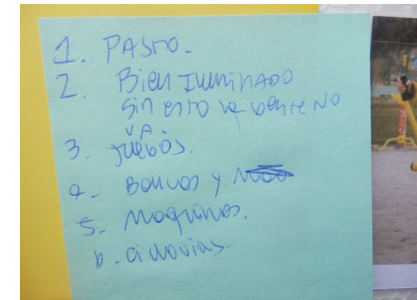 1. PASTO-
2. Bien Iluminado
sin esto la gente NO
VA
3. JUEGOS.
4- Bancos y
5- Maquinas.
6- ciclovias-